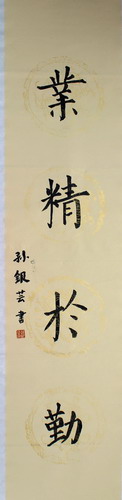 業精於勤
孙银芸書